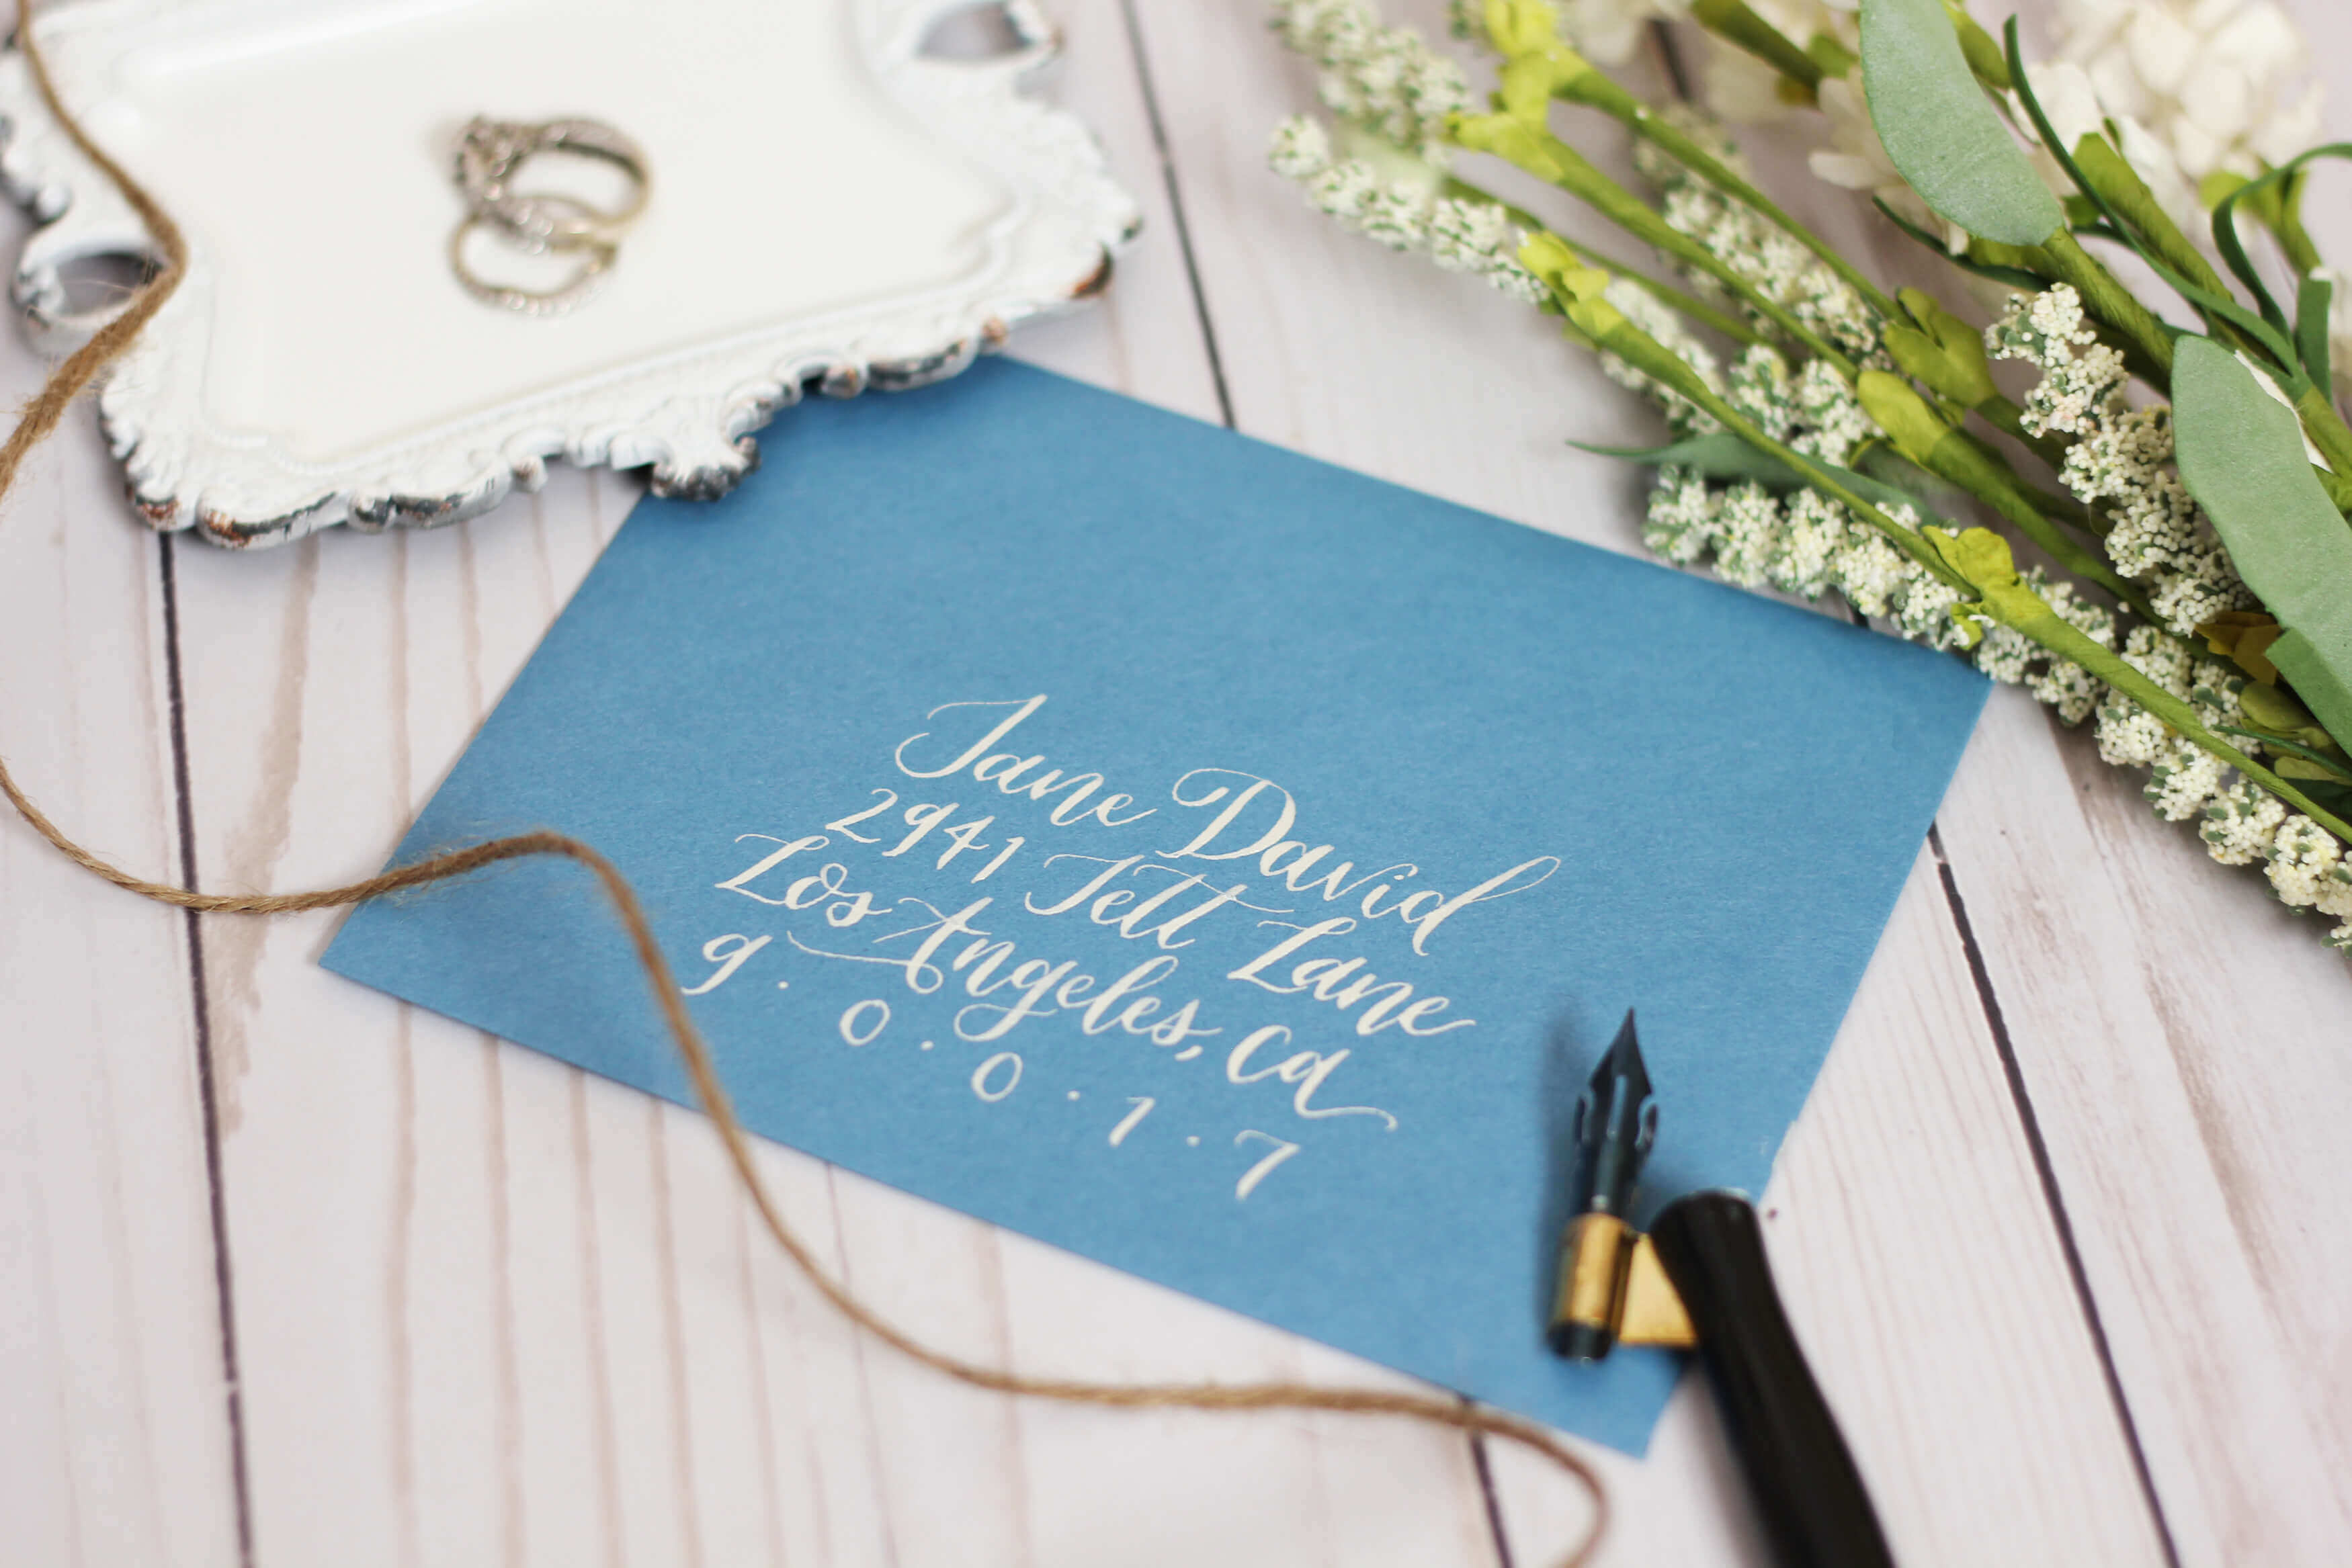 Jane David
2941 Tett Lane
Los Angeles, Ca
9.0.0.1.7